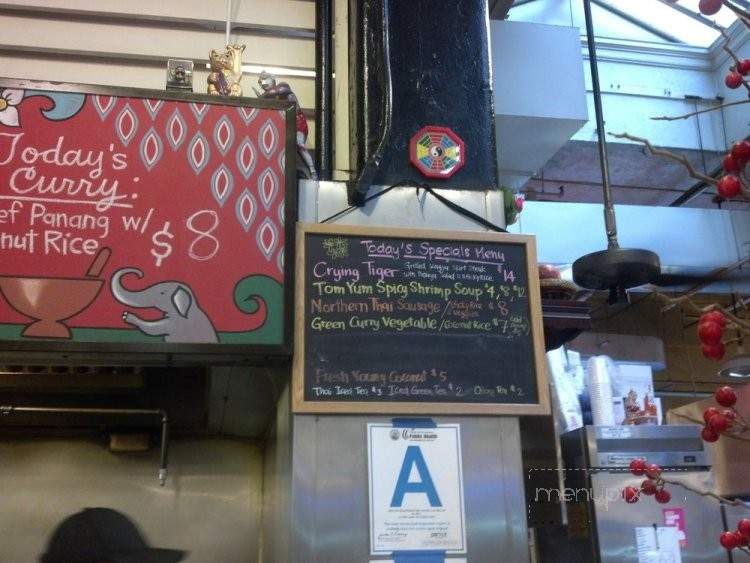 Today's
Curry:
ef Panang w/
nut Rice
$8
Today's Specials Menu
Crying Tiger Grilled Wagyu Skirt Steak $14
with Papaya Salad
Tom Yum Spicy Shrimp Soup $4, 8, $12
Northern Thai Sausage / Sticky Rice $8
& veggies
Green Curry Vegetable / Coconut Rice $7
Fresh Young Coconut $5
Thai Iced Tea $3 Iced Green Tea $2 Tea $2
A
menupix